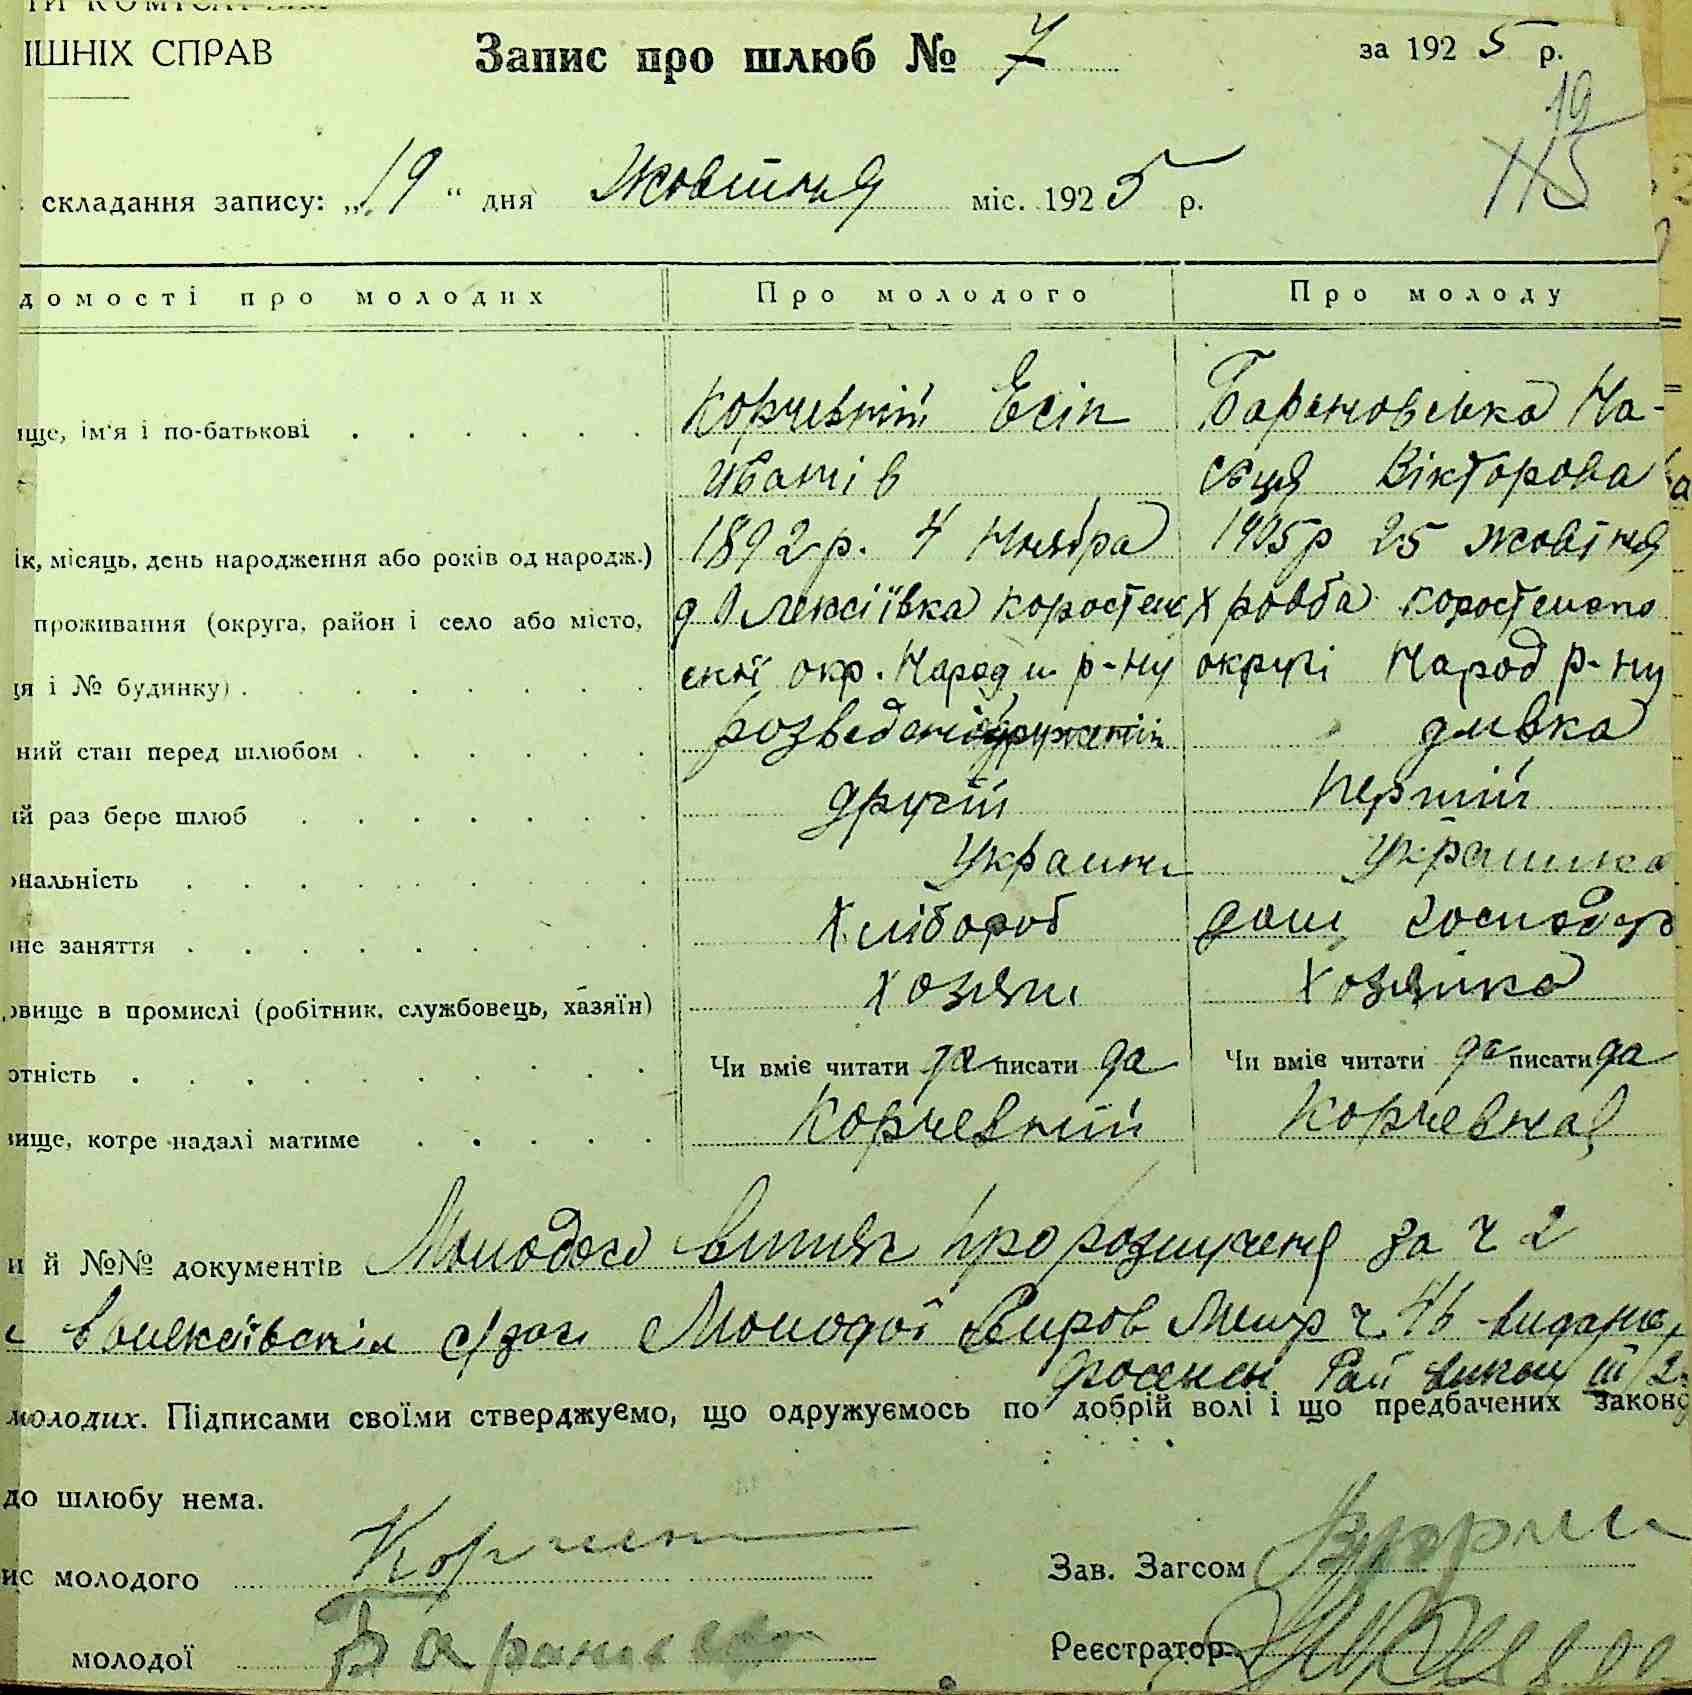 ІШНІХ СПРАВ
Запис про шлюб № 7
за 1925 р.
19
складання запису: „19“ дня Жовтня міс. 1925 р.
домості про молодих
Про молодого
Про молоду
ище, ім'я і по-батькові
Корчевній Есіп
Барановська На-
Иванів
Вікторова
ік, місяць, день народження або років од народж.)
1892 р. 4 Ноября
1905р 25 жовтня
проживання (округа, район і село або місто,
Олексіївка коростен
коростенсько
ця і № будинку)
скої окр. Народи р-ну
округі Народ р-ну
ний стан перед шлюбом
розведений
дивка
ій раз бере шлюб
другій
первій
ональність
Украинец
Украинка
не заняття
Хлібороб
дом господар
овище в промислі (робітник, службовець, хазяїн)
хозяин
хозяйка
отність
Чи вміє читати да писати да
Чи вміє читати да писати да
вище, котре надалі матиме
Корчевній
Корчевная
и й №№ документів Молодого витяг про розлучення за ч 2
Молодої ч. 46 видана
Рай викон
молодих. Підписами своїми стверджуємо, що одружуємось по добрій волі і що предбачених законо
до шлюбу нема.
ис молодого
Зав. Загсом
молодої
Реєстратор